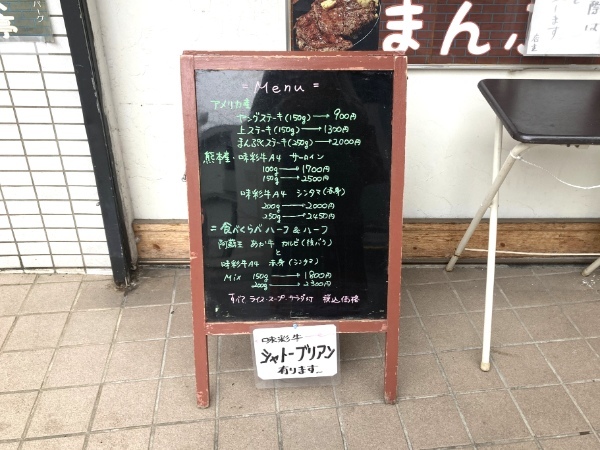 まんぷ
= Menu =
アメリカ産
ヤングステーキ(150g) → 900円
上ステーキ(150g) → 1300円
まんぷくステーキ(250g) → 2000円
熊本産・味彩牛A4 サーロイン
100g → 1700円
150g → 2500円
味彩牛A4 シンタマ(赤身)
200g → 2000円
250g → 2450円
= 食べくらべハーフ&ハーフ
阿蘇王 あか牛 カルビ(後バラ)
と
味彩牛A4 赤身(シンタマ)
Mix 150g → 1800円
200g → 2300円
すべて ライス・スープ・サラダ付 税込価格
味彩牛
シャトーブリアン
有ります。